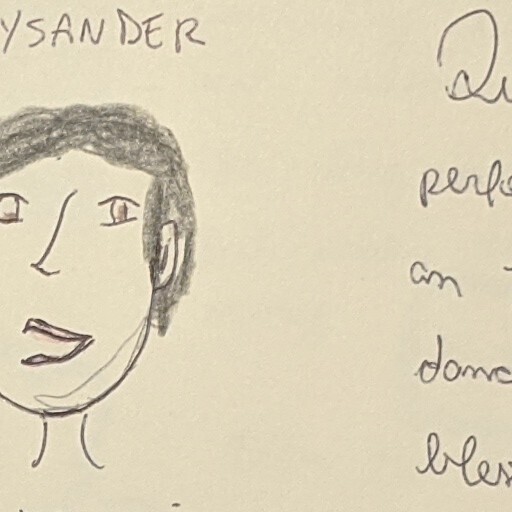 YSANDER
Qu
perfo
an
danc
bles